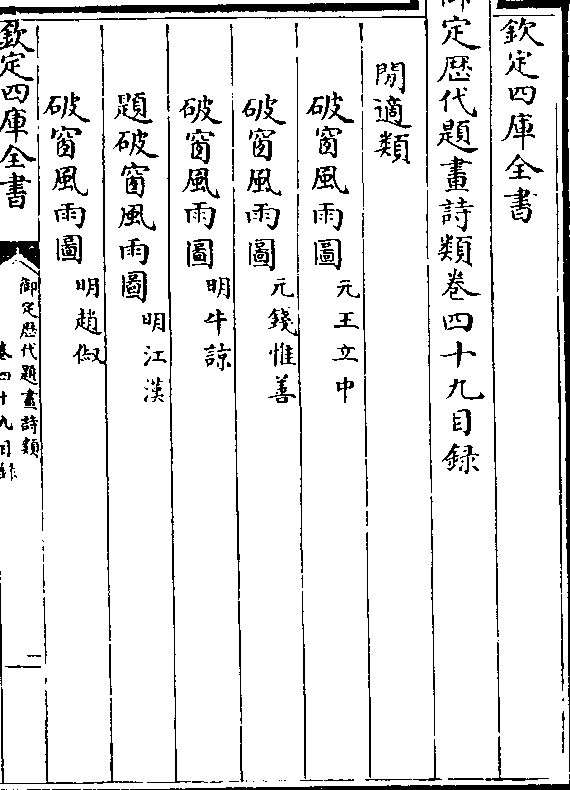 欽定四庫全書
御定歴代題畫詩類卷四十九目録
閒適類
破窗風雨圖 元王立中
破窗風雨圖 元錢惟善
破窗風雨圖 明牛諒
題破窗風雨圖 明江漢
破窗風雨圖 明趙俶
欽定四庫全書
御定歴代題畫詩類
卷四十九目録
一